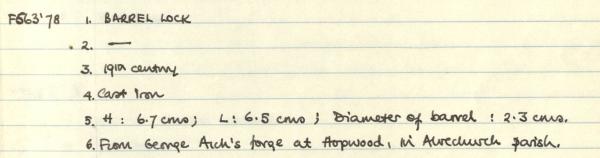 F563'78 1. BARREL LOCK
2. —
3. 19th century
4. Cast Iron
5. H: 6.7 cms; L: 6.5 cms; Diameter of barrel: 2.3 cms.
6. From George Arch's forge at Hopwood, in Alvechurch parish.